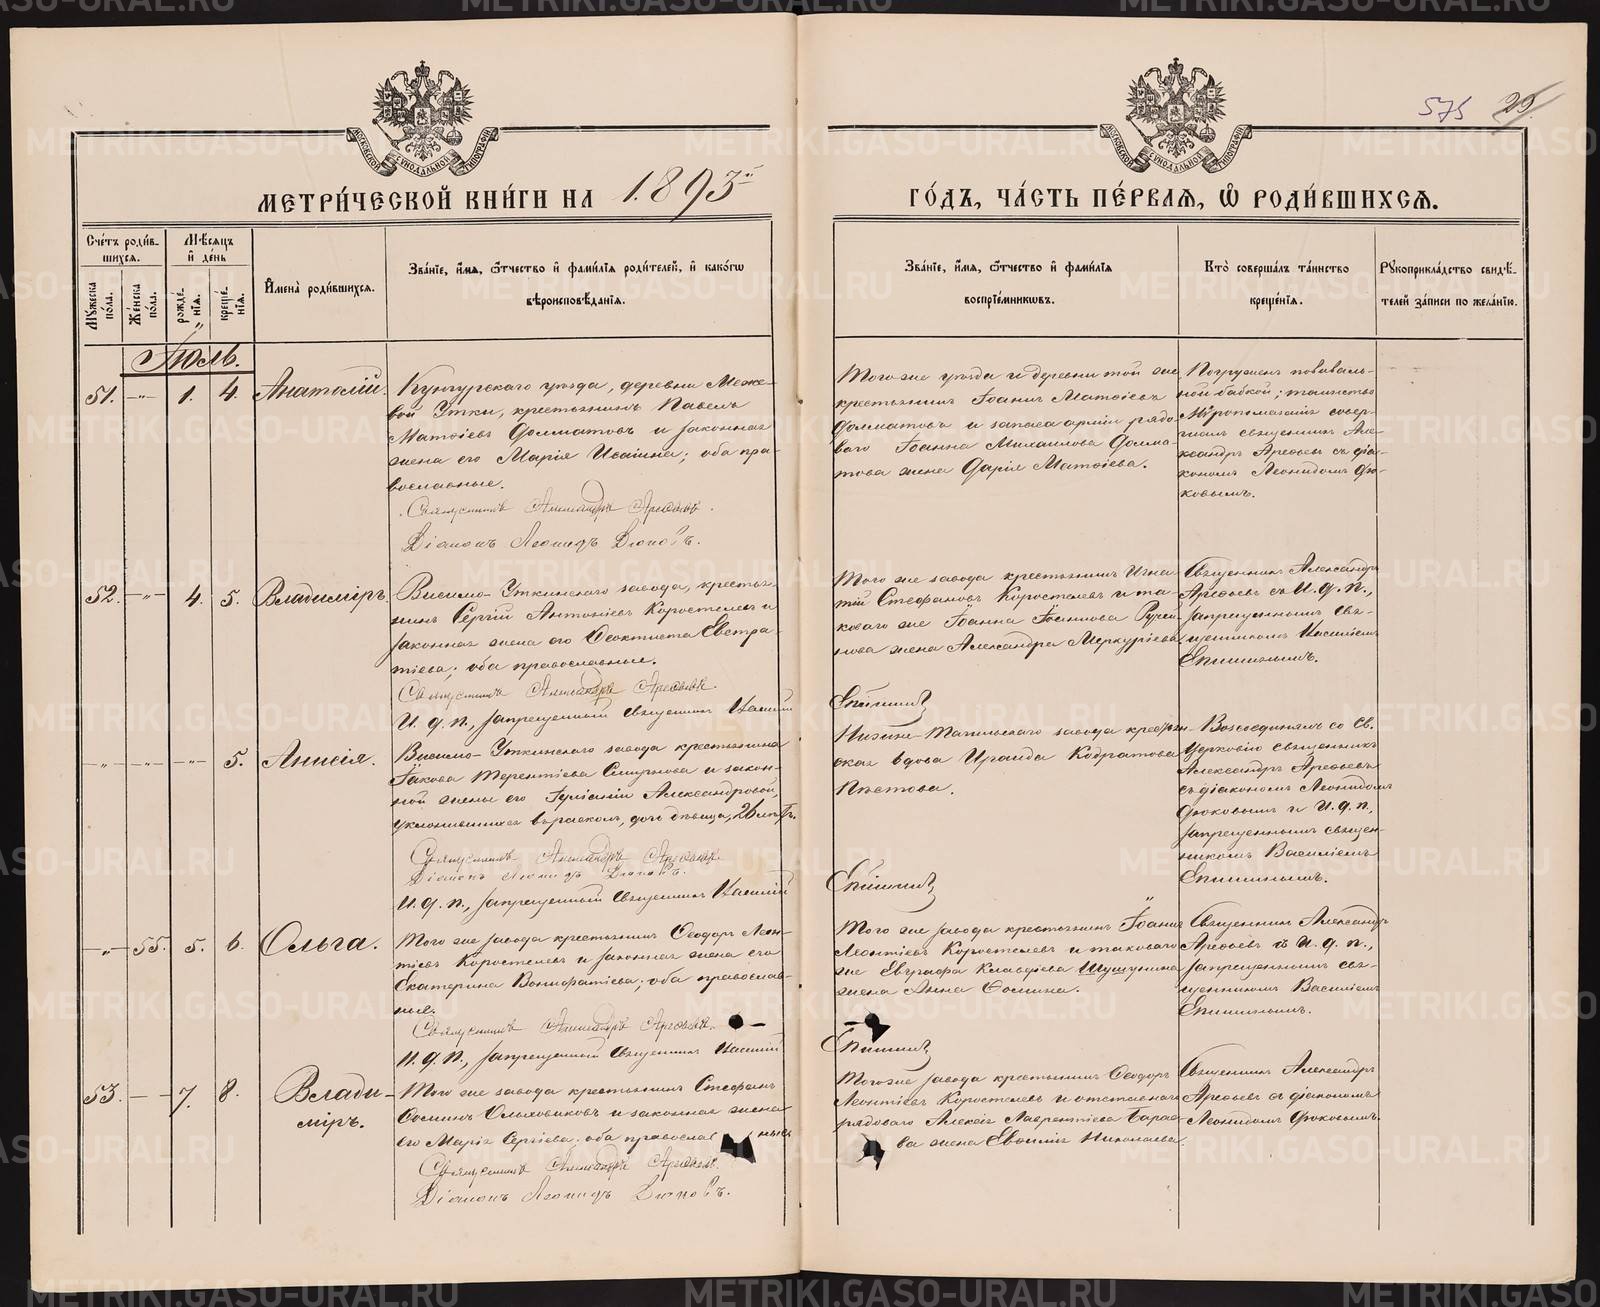 575 29.
МОСКОВСКОЙ СѴНОДАЛЬНОЙ ТИПОГРАФІИ
МОСКОВСКОЙ СѴНОДАЛЬНОЙ ТИПОГРАФІИ
МЕТРИ́ЧЕСКОЙ КНИ́ГИ НА 1893й ГО́ДЪ, ЧА́СТЬ ПЕ́РВАЯ, Ѡ РОДИ́ВШИХСЯ.
Сче́тъ роди́в-
шихся.
Му́жеска по́ла.
Же́нска по́ла.
Мѣ́сяцъ
и де́нь
рожде́нія.
креще́нія.
Имена̀ роди́вшихся.
Зва́ніе, и́мя, ѻ҆́тчество и фами́лія роди́телей, и како́гѡ
вѣроисповѣ́данія.
Зва́ніе, и́мя, ѻ҆́тчество и фами́лія
воспріе́мниковъ.
Кто̀ соверша́лъ та́инство
креще́нія.
Рукоприкла́дство свидѣ́-
телей за́писи по жела́нію.
Іюль.
51. —"— 1. 4. Анатолій.
Кунгурскаго уѣзда, деревни Меже-
вой Утки, крестьянинъ Павелъ
Матѳіевъ Долматовъ и законная
жена его Марія Исаіина; оба пра-
вославные.
Священникъ Александръ Арефьевъ.
Діаконъ Леонидъ Дюковъ.
Того же уѣзда и деревни той же
крестьянинъ Іоаннъ Матѳіевъ
Долматовъ и запаса арміи рядо-
ваго Іоанна Михаилова Долма-
това жена Дарія Матѳіева.
Погруженъ повиваль-
ной бабкой; таинство
Мѵропомазанія совер-
шилъ священникъ Але-
ксандръ Арефьевъ съ діа-
кономъ Леонидомъ Дю-
ковымъ.
52. —"— 4. 5. Владиміръ.
Висимо-Уткинскаго завода, кресть-
янинъ Сергій Антоніевъ Коростелевъ и
законная жена его Ѳеоктиста Евстра-
тіева; оба православные.
Священникъ Александръ Арефьевъ.
И. д. п., запрещенный Священникъ Василій
Спішинъ
Того же завода крестьянинъ Игна-
тій Стефановъ Коростелевъ и та-
коваго же Іоанна Іоаннова
жена Александра Меркуріева
Священникъ Александръ
Арефьевъ съ И. д. п.,
запрещеннымъ Свя-
щенникомъ Василіемъ
Спишинымъ.
—"— —"— —"— 5. Анисія.
Висимо-Уткинскаго завода крестьянина
Іакова Терентіева Смирнова и закон-
ной жены его Іуліаніи Александровой,
уклонившихся въ расколъ, дочь дѣвица, 26 лѣтъ.
Священникъ Александръ Арефьевъ
Діаконъ Леонидъ Дюковъ.
И. д. п., запрещенный Священникъ Василій
Спішинъ
Нижне-Тагильскаго завода крестьян-
ская вдова Ираида Кодратова
Возсоединялъ со Св.
Церковію священникъ
Александръ Арефьевъ
съ діакономъ Леонидомъ
Дюковымъ и И. д. п.
запрещеннымъ священ-
никомъ Василіемъ
Спишинымъ.
—"— 55. 5. 6. Ольга.
Того же завода крестьянинъ Ѳеодоръ Леон-
тіевъ Коростелевъ и законная жена его
Екатерина Вонифатіева; оба православ-
ные.
Священникъ Александръ Арефьевъ.
И. д. п., запрещенный Священникъ Василій
Спішинъ
Того же завода крестьянинъ Іоаннъ
Леонтіевъ Коростелевъ и таковаго
же Евграфа Клавдіева Шушунина
жена Анна Ѳомина.
Священникъ Александръ
Арефьевъ съ И. д. п.,
запрещеннымъ свя-
щенникомъ Василіемъ
Спишинымъ.
53. — — 7. 8. Влади-
міръ.
Того же завода крестьянинъ Стефанъ
Ѳоминъ Ольховиковъ и законная жена
его Марія Сергіева; оба православные
Священникъ Александръ Арефьевъ.
Діаконъ Леонидъ Дюковъ.
Того же завода крестьянинъ Ѳеодоръ
Леонтіевъ Коростелевъ и отставнаго
рядоваго Алексія Лаврентіева
жена Евѳимія Николаева.
Священникъ Александръ
Арефьевъ съ діакономъ
Леонидомъ Дюковымъ.
METRIKI.GASO-URAL.RU